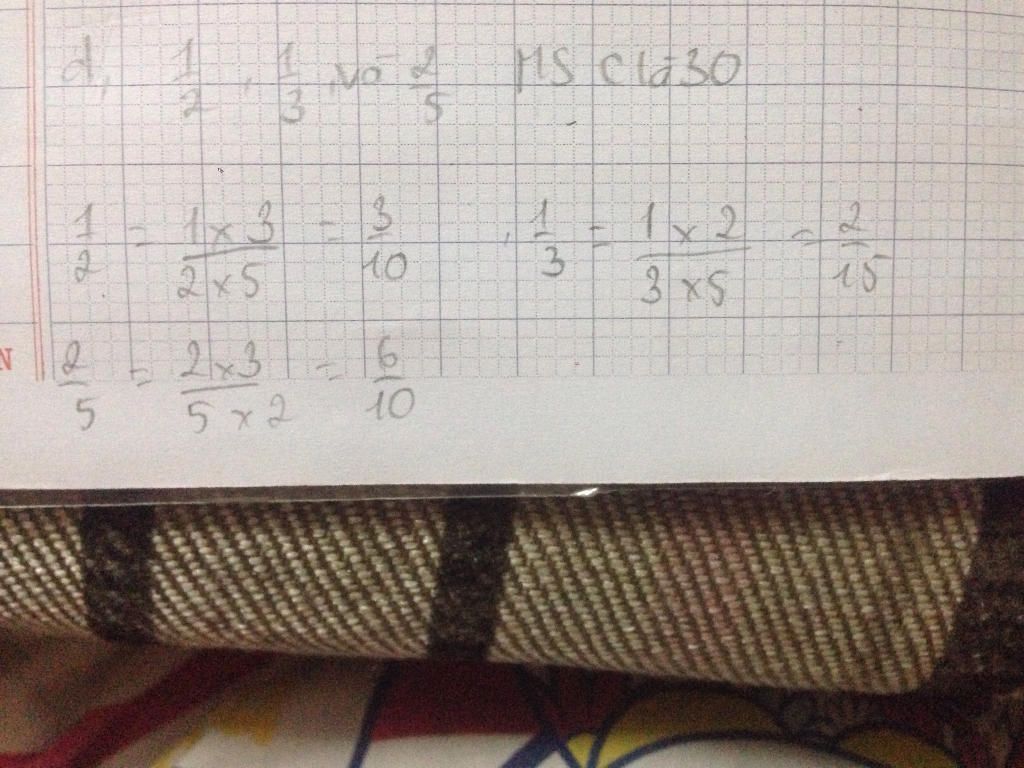 d, 1/2, 1/3, và 2/5 MSC là 30
1/2 = 1 x 3/2 x 5 = 3/10, 1/3 = 1 x 2/3 x 5 = 2/15
2/5 = 2 x 3/5 x 2 = 6/10
N